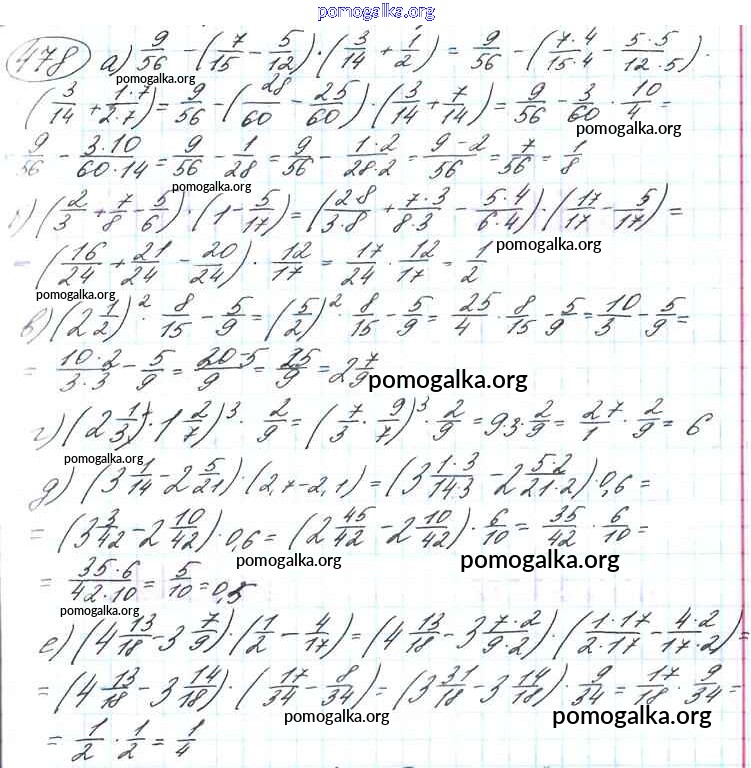 pomogalka.org
478 а) 9/56 - (7/15 - 5/12) · (3/14 + 1/2) = 9/56 - (7·4/15·4 - 5·5/12·5) ·
pomogalka.org
(3/14 + 1·7/2·7) = 9/56 - (28/60 - 25/60) · (3/14 + 7/14) = 9/56 - 3/60 · 10/4 =
pomogalka.org
9/56 - 3·10/60·14 = 9/56 - 1/28 = 9/56 - 1·2/28·2 = 9-2/56 = 7/56 = 1/8
pomogalka.org
(2/3 + 7/8 - 5/6) · (1 - 5/17) = (2·8/3·8 + 7·3/8·3 - 5·4/6·4) (17/17 - 5/17) =
pomogalka.org
= (16/24 + 21/24 - 20/24) · 12/17 = 17/24 · 12/17 = 1/2
pomogalka.org
в) (2 1/2)² · 8/15 - 5/9 = (5/2)² · 8/15 - 5/9 = 25/4 · 8/15 - 5/9 = 10/3 - 5/9 =
= 10·2/3·3 - 5/9 = 20-5/9 = 25/9 = 2 7/9
pomogalka.org
г) (2 1/3 · 1 2/7)³ · 2/9 = (7/3 · 9/7)³ · 2/9 = 9·3 · 2/9 = 27/1 · 2/9 = 6
pomogalka.org
д) (3 1/14 - 2 5/21) · (2,7 - 2,1) = (3 1·3/14·3 - 2 5·2/21·2) · 0,6 =
= (3 3/42 - 2 10/42) · 0,6 = (2 45/42 - 2 10/42) · 6/10 = 35/42 · 6/10 =
pomogalka.org
pomogalka.org
= 35·6/42·10 = 5/10 = 0,5
pomogalka.org
е) (4 13/18 - 3 7/9) · (1/2 - 4/17) = (4 13/18 - 3 7·2/9·2) · (1·17/2·17 - 4·2/17·2) =
= (4 13/18 - 3 14/18) · (17/34 - 8/34) = (3 31/18 - 3 14/18) · 9/34 = 17/18 · 9/34 =
pomogalka.org
pomogalka.org
= 1/2 · 1/2 = 1/4